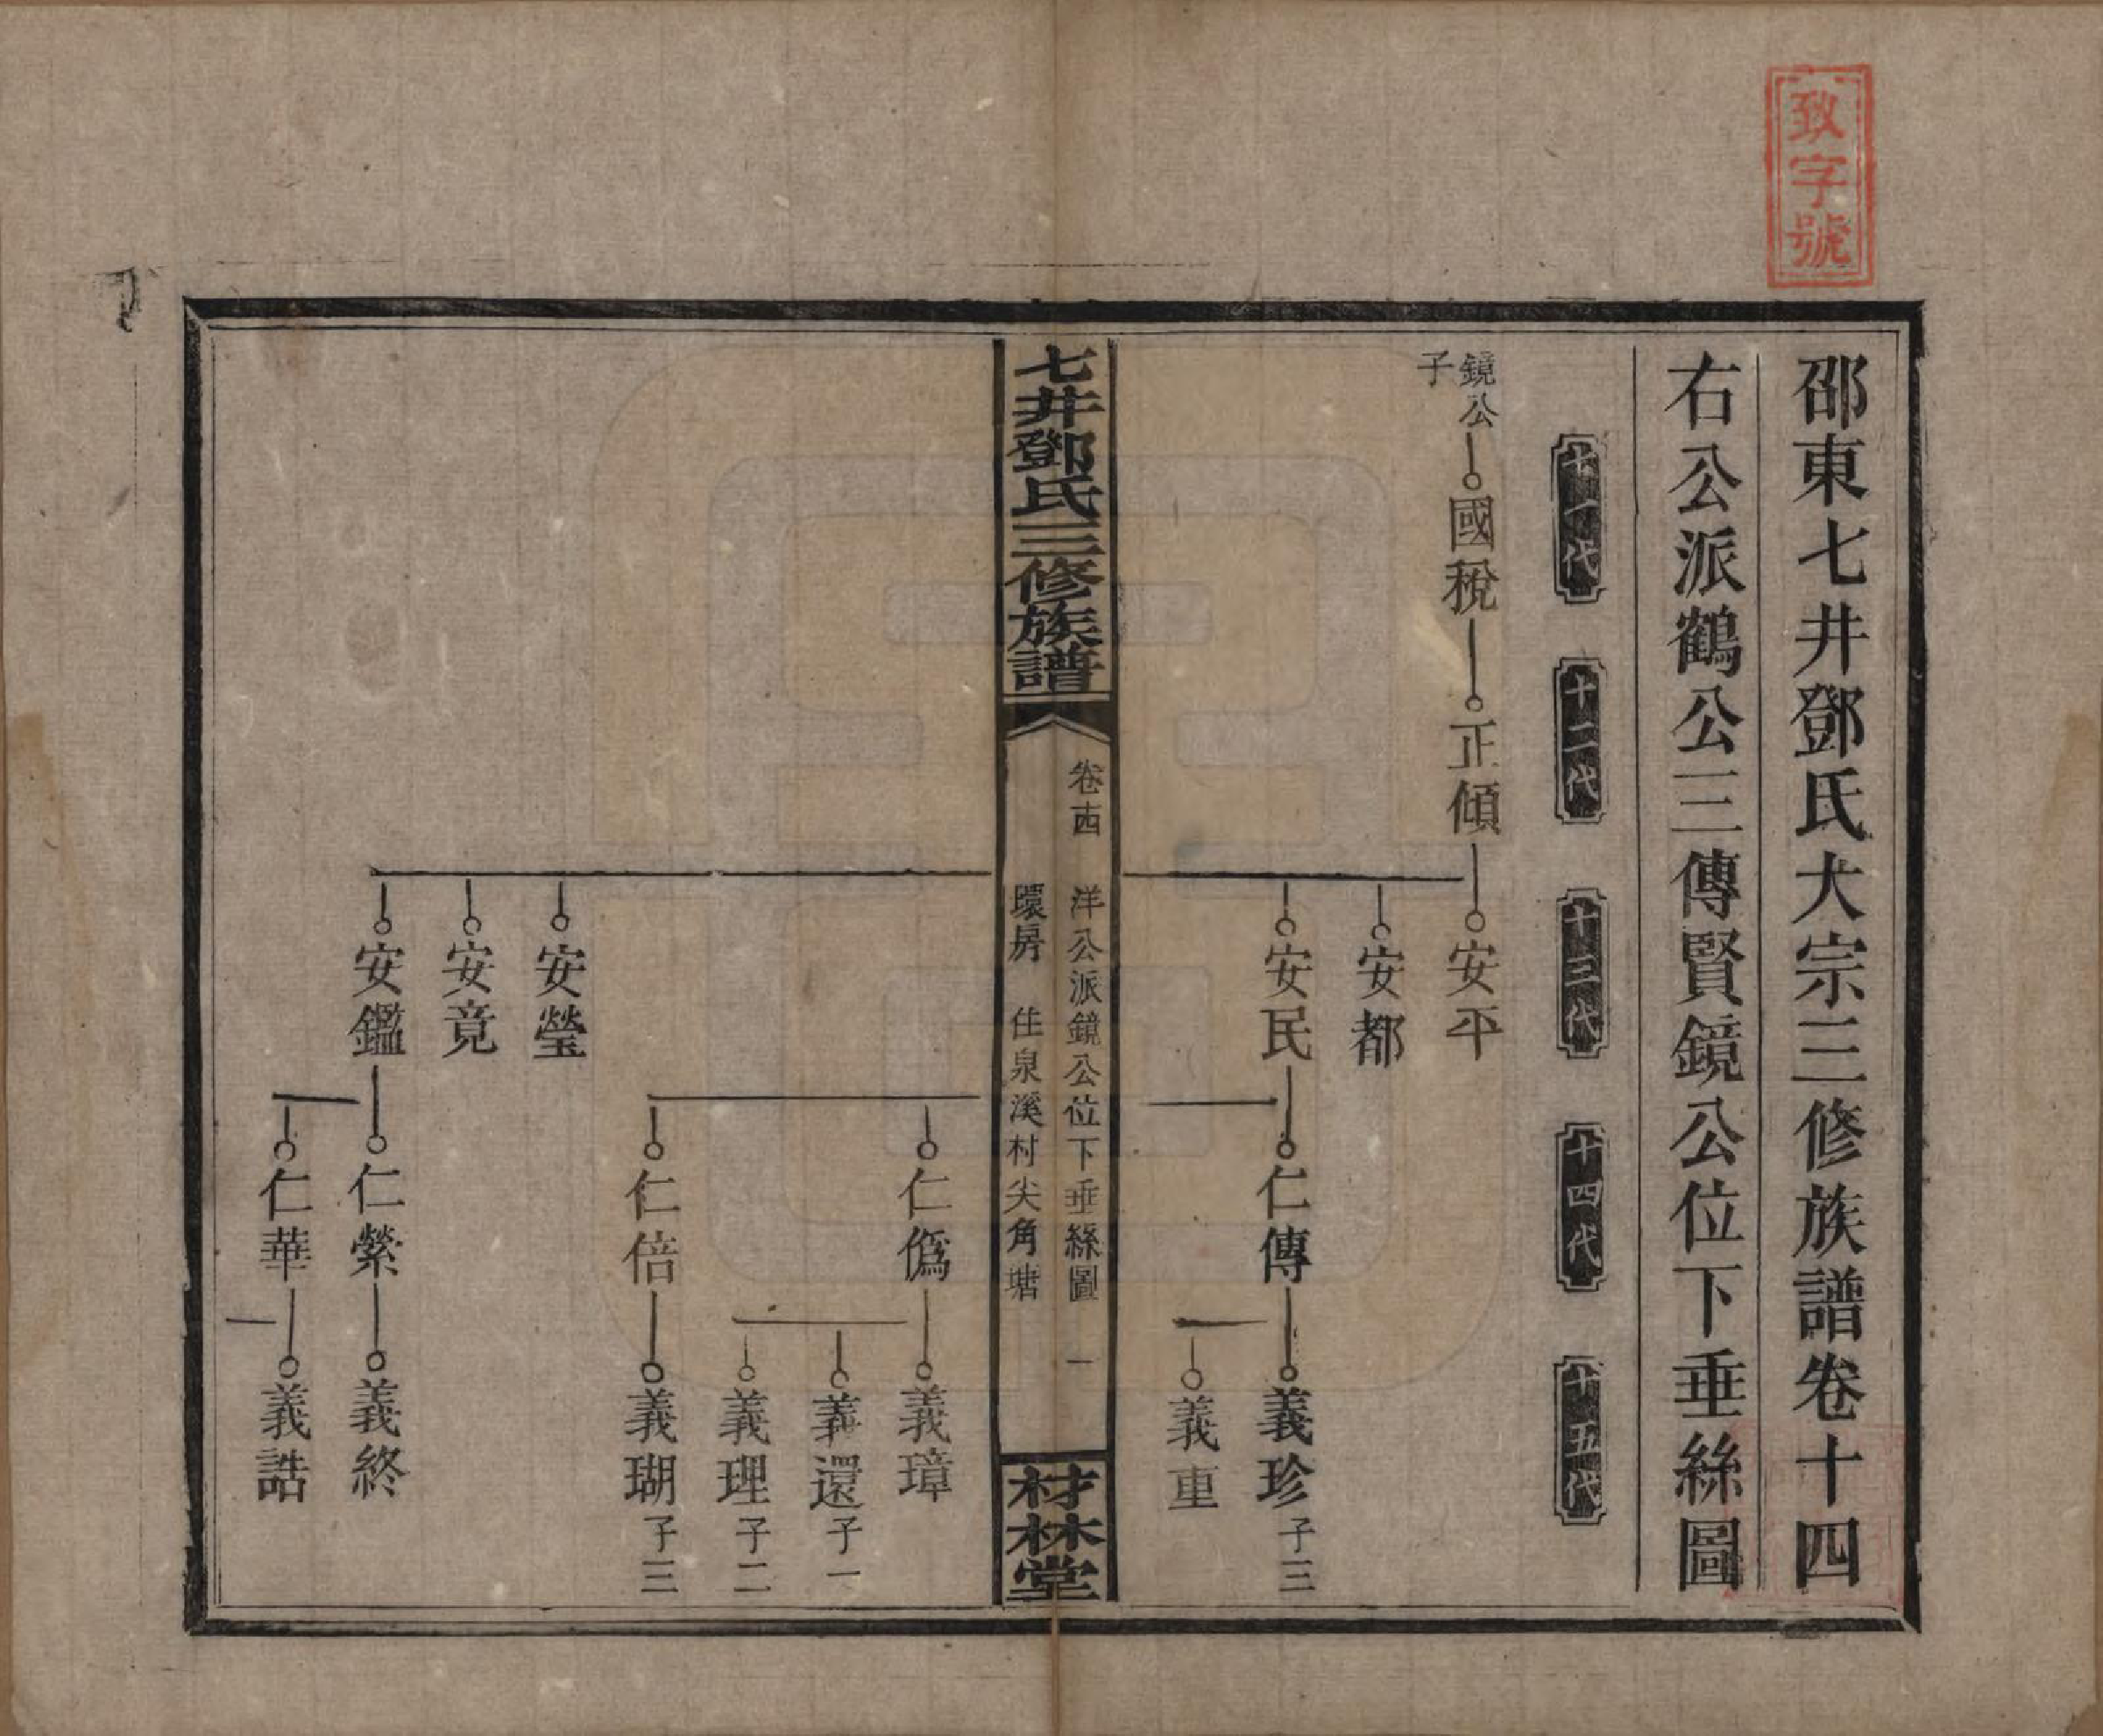 致字號
邵東七井鄧氏大宗三修族譜卷十四
右公派鶴公三傳賢鏡公位下垂絲圖
十一代
十二代
十三代
十四代
十五代
鏡公子
國稅
正傾
安平
安都
安民
仁傳
義珍 子三
義重
七井鄧氏三修族譜
卷十四 洋公派鏡公位下垂絲圖 一
環房 住泉溪村尖角塘
材林堂
仁僞
義璋
義還 子一
義理 子二
仁倍
義瑚 子三
安瑩
安竟
安鑑
仁縈
義終
仁華
義誥